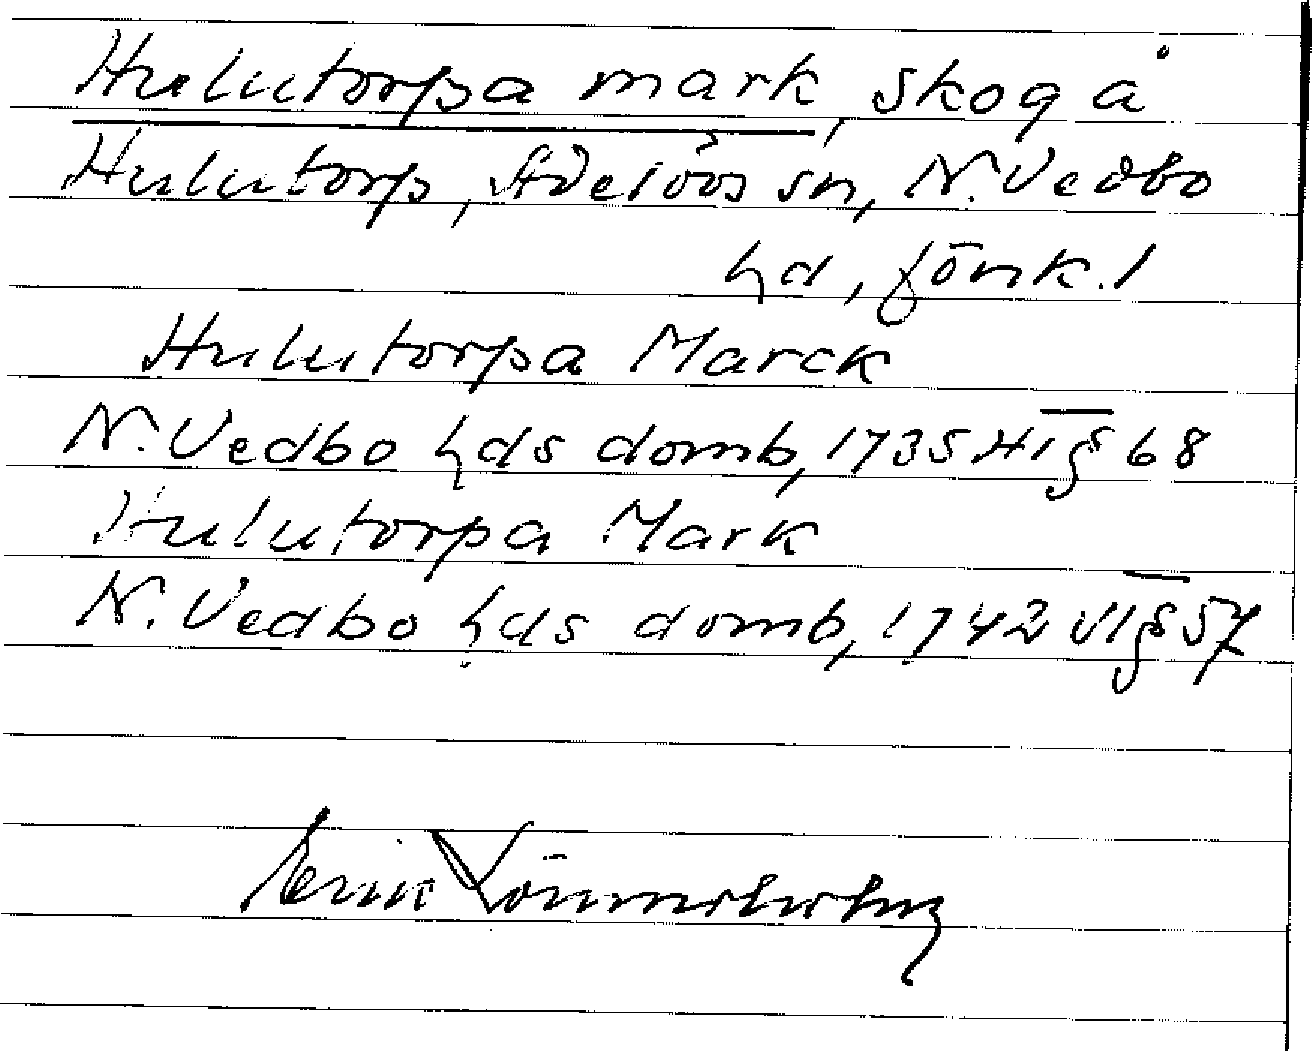 Hulutorpa mark, skog å
Hulutorp, Adelövs sn, N. Vedbo
hd, Jönk. l
Hulutorpa Marck
N. Vedbo hds domb, 1735 HT § 68
Hulutorpa Mark
N. Vedbo hds domb, 1742 VT § 57
Erik Lönnerholm